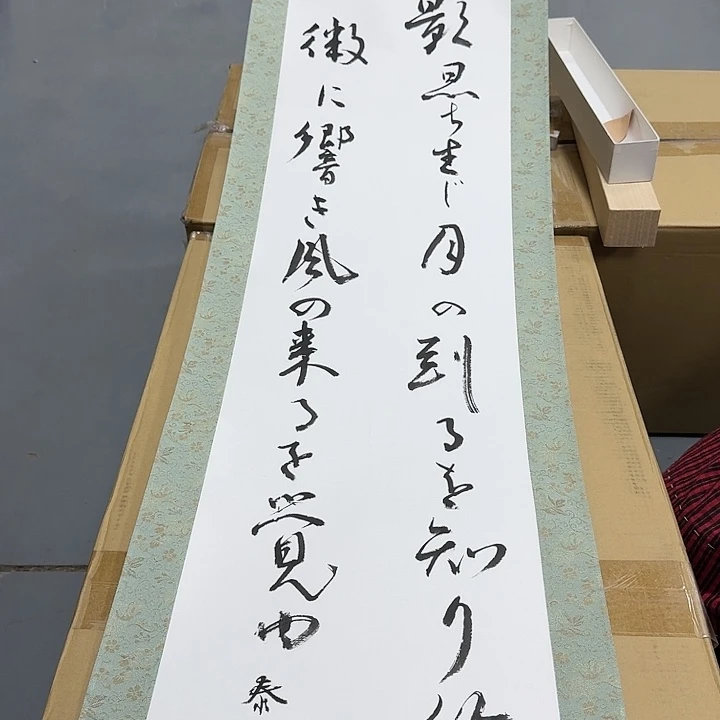 影忽ち生じ月の到るを知り
微に響き風の来るを覚ゆ
泰